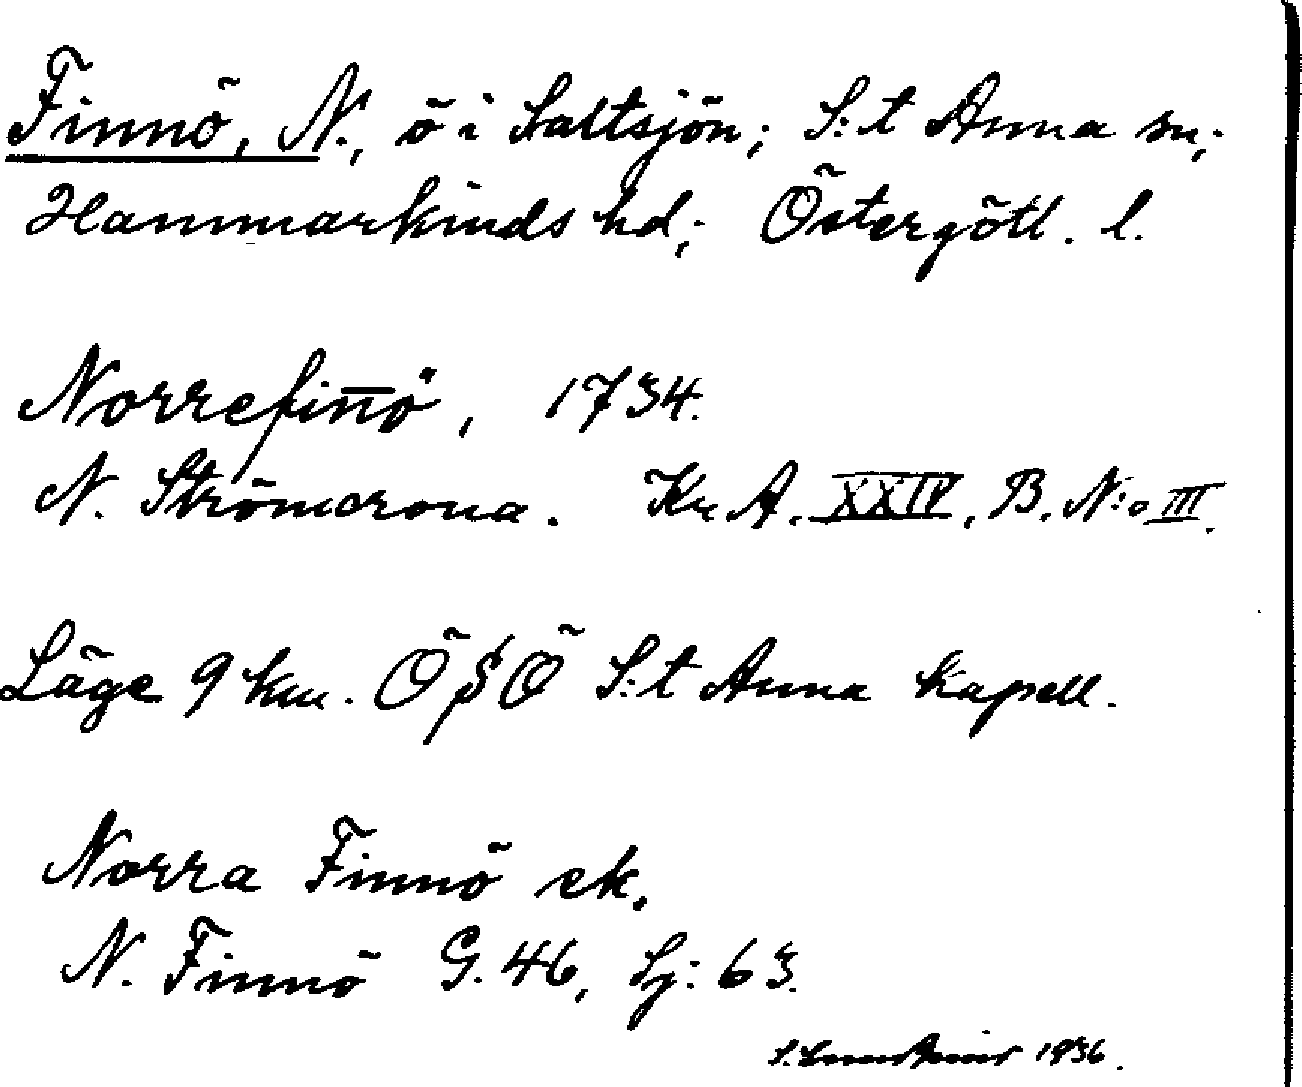 Finnö, N., ö i Saltsjön; S:t Anna sn;
Hammarkinds hd; Östergötl. l.
Norrefin̅ö, 1734.
N. Strömcrona. Kr A. XXIV, B. N:o III.
Läge 9 km. ÖSÖ S:t Anna kapell.
Norra Finnö ek.
N. Finnö G. 46, Sj: 63.
1936.